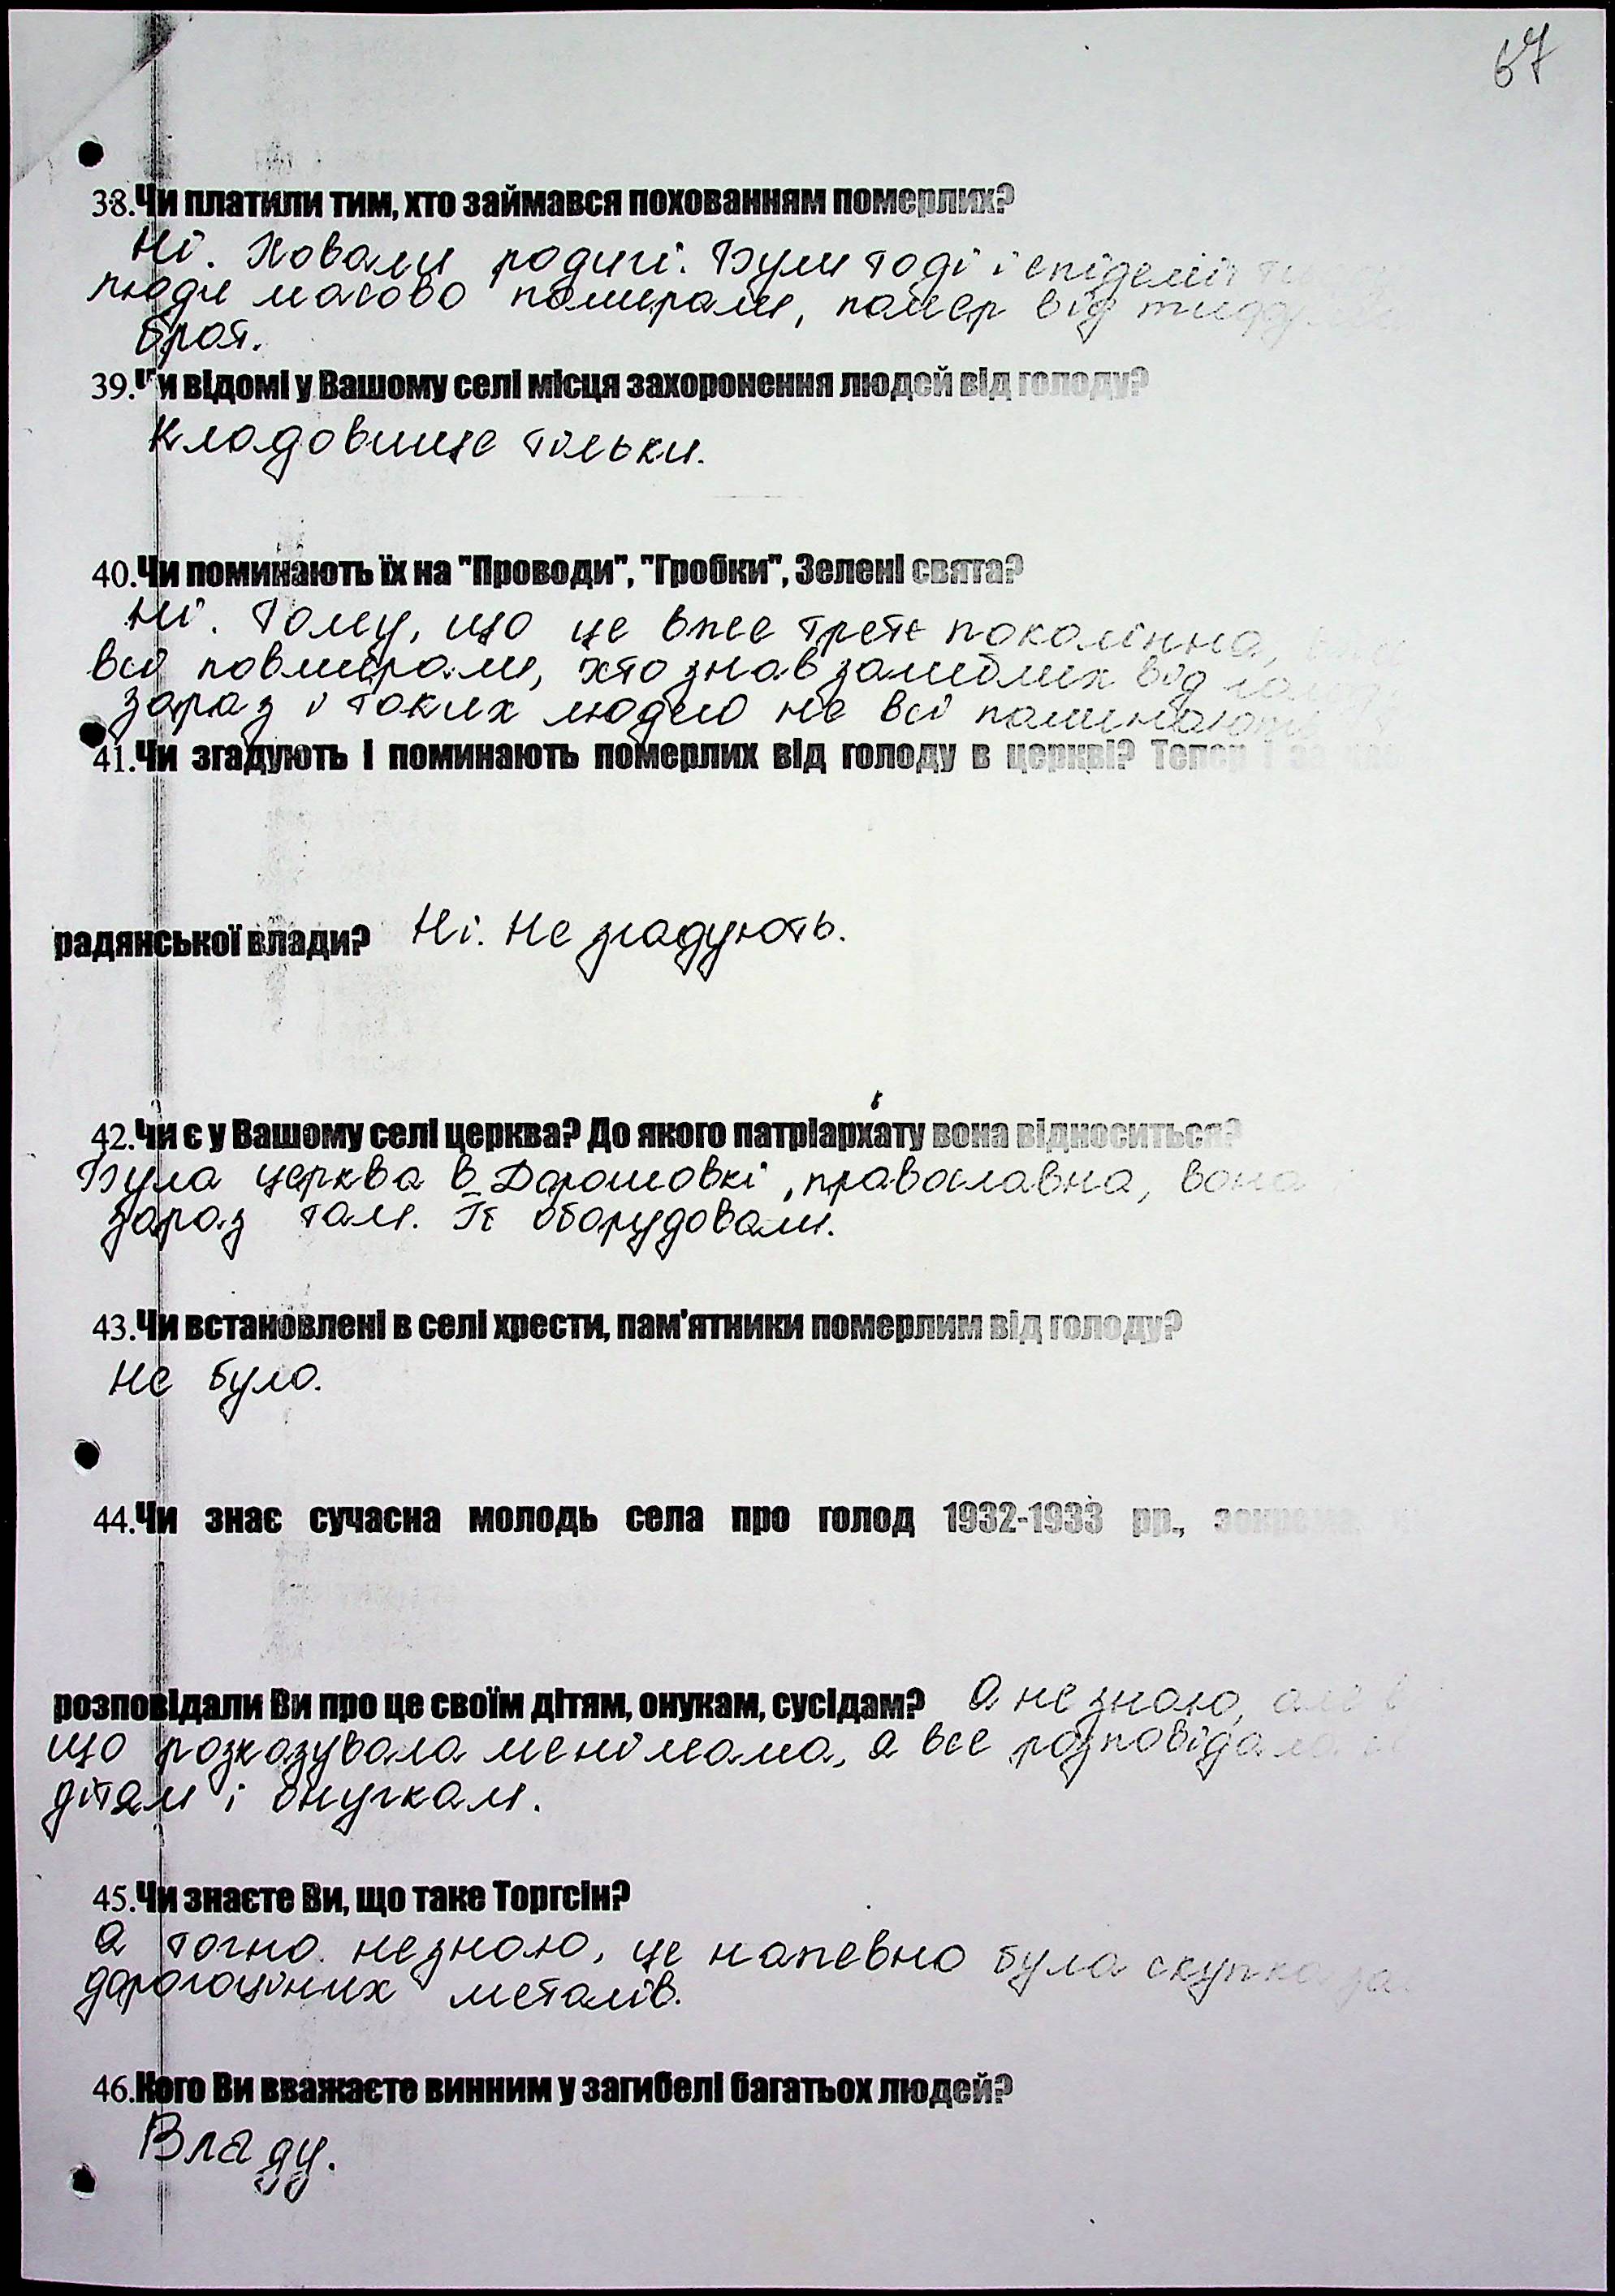 67
38.Чи платили тим, хто займався похованням померлих?
Ні. Ховали родичі. Були тоді і епідемії
люди масово помирали, помер від тифу
брат.
39.Чи відомі у Вашому селі місця захоронення людей від голоду?
Кладовище тільки.
40.Чи поминають їх на "Проводи", "Гробки", Зелені свята?
Ні. Тому, що це вже третє покоління,
всі повмирали, хто знав загиблих від голоду
зараз і таких людей не всі поминають
41.Чи згадують і поминають померлих від голоду в церкві? Тепер і за
радянської влади? Ні. Не згадують.
42.Чи є у Вашому селі церква? До якого патріархату вона відноситься?
Була церква в Дорошовкі, православна, вона
зараз там. Її оборудовали.
43.Чи встановлені в селі хрести, пам'ятники померлим від голоду?
Не було.
44.Чи знає сучасна молодь села про голод 1932-1933 рр., зокрема,
розповідали Ви про це своїм дітям, онукам, сусідам? Я не знаю, але
що розказувала мені мама, я все розповідала
дітям і онучкам.
45.Чи знаєте Ви, що таке Торгсін?
Я точно не знаю, це напевно була скупка
дорогоціних металів.
46.Кого Ви вважаєте винним у загибелі багатьох людей?
Владу.